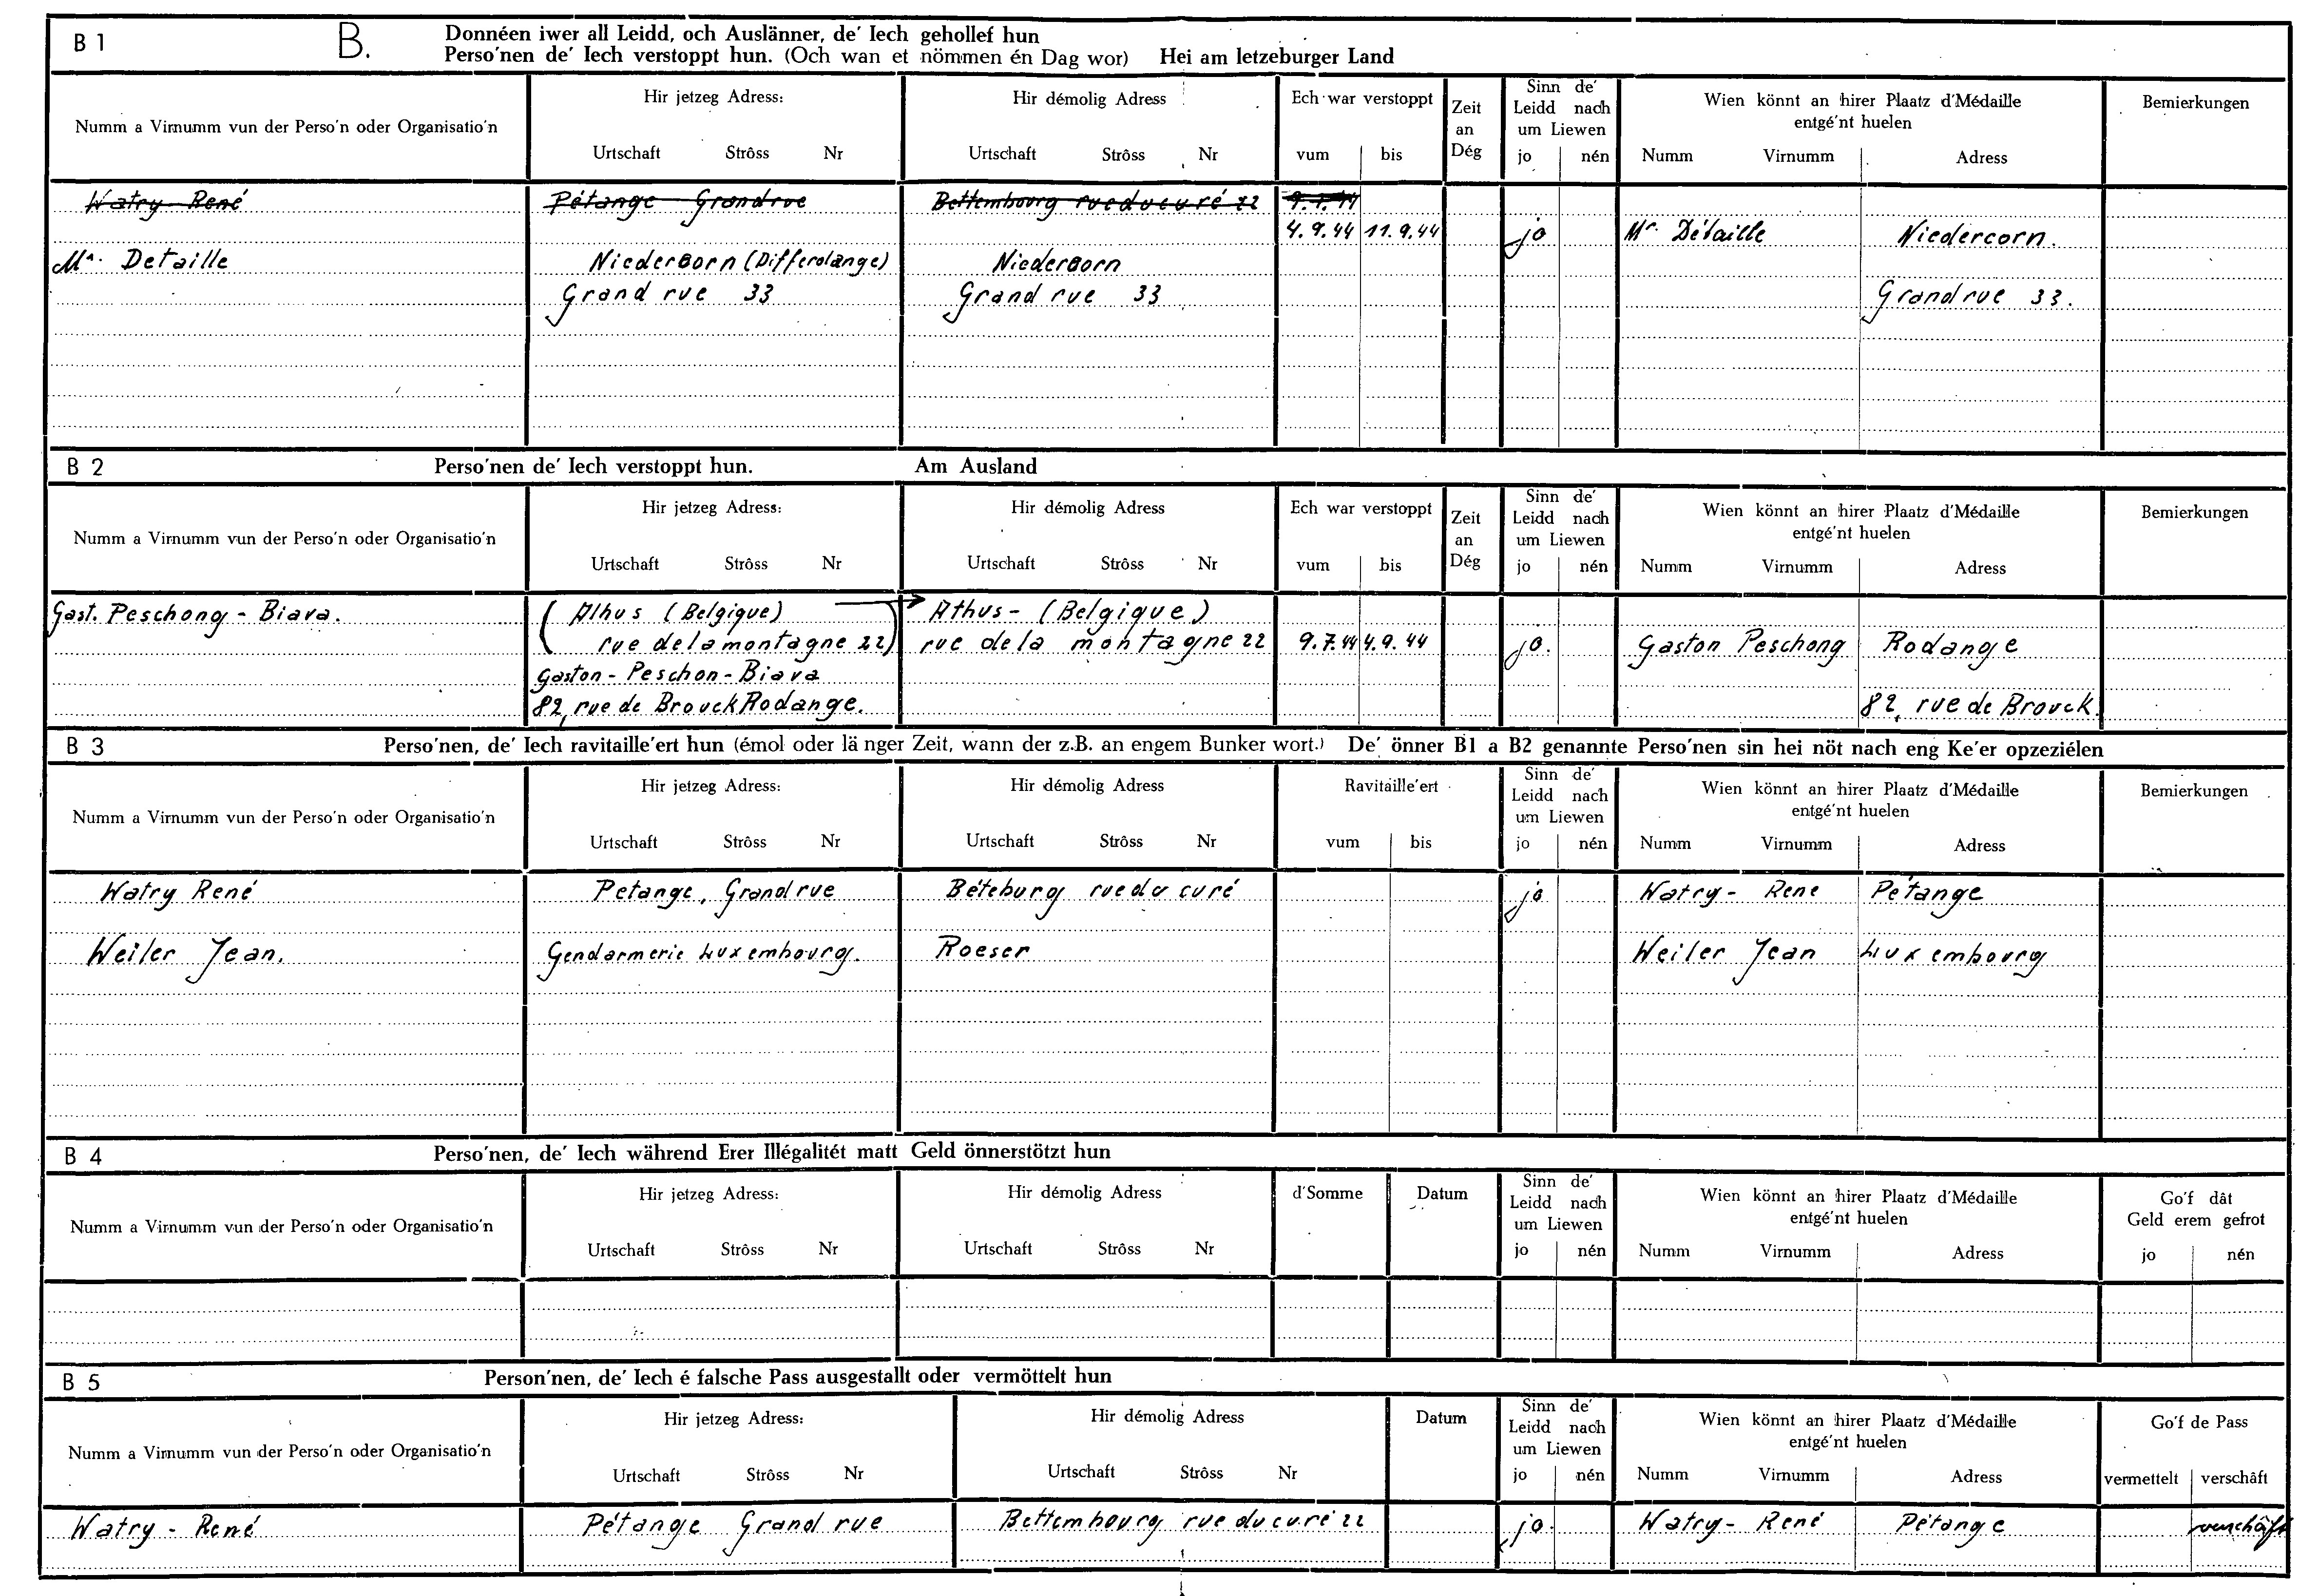 B 1 B. Donnéen iwer all Leidd, och Auslänner, de' Iech gehollef hun
Perso'nen de' Iech verstoppt hun. (Och wan et nömmen én Dag wor) Hei am letzeburger Land
Numm a Virnumm vun der Perso'n oder Organisatio'n
Hir jetzeg Adress:
Urtschaft Strôss Nr
Hir démolig Adress
Urtschaft Strôss Nr
Ech war verstoppt
vum bis
Zeit
an
Dég
Sinn de'
Leidd nach
um Liewen
jo nén
Wien könnt an hirer Plaatz d'Médaille
entgé'nt huelen
Numm Virnumm Adress
Bemierkungen
Watry René Pétange Grandrue Bettembourg rue du curé 22 9.7.44
4.9.44 11.9.44 jo Mr. Détaille Niedercorn.
Mr. Detaille Niedercorn (Differdange) Niedercorn
Grand rue 33 Grand rue 33 Grand rue 33.
B 2 Perso'nen de' Iech verstoppt hun. Am Ausland
Numm a Virnumm vun der Perso'n oder Organisatio'n
Hir jetzeg Adress:
Urtschaft Strôss Nr
Hir démolig Adress
Urtschaft Strôss Nr
Ech war verstoppt
vum bis
Zeit
an
Dég
Sinn de'
Leidd nach
um Liewen
jo nén
Wien könnt an hirer Plaatz d'Médaille
entgé'nt huelen
Numm Virnumm Adress
Bemierkungen
Gast. Peschong - Biava. ( Athus (Belgique) Athus - (Belgique)
rue de la montagne 22) rue de la montagne 22 9.7.44 4.9.44 jo. Gaston Peschong Rodange
Gaston - Peschon - Biava
82, rue de Brouck Rodange. 82, rue de Brouck.
B 3 Perso'nen, de' Iech ravitaille'ert hun (émol oder länger Zeit, wann der z.B. an engem Bunker wort.) De' önner B1 a B2 genannte Perso'nen sin hei nöt nach eng Ke'er opzeziélen
Numm a Virnumm vun der Perso'n oder Organisatio'n
Hir jetzeg Adress:
Urtschaft Strôss Nr
Hir démolig Adress
Urtschaft Strôss Nr
Ravitaille'ert
vum bis
Sinn de'
Leidd nach
um Liewen
jo nén
Wien könnt an hirer Plaatz d'Médaille
entgé'nt huelen
Numm Virnumm Adress
Bemierkungen
Watry René Petange, Grand rue Béteburg rue du curé jo Watry - Rene Pétange
Weiler Jean. Gendarmerie Luxembourg. Roeser Weiler Jean Luxembourg
B 4 Perso'nen, de' Iech während Erer Illégalitét matt Geld önnerstötzt hun
Numm a Virnumm vun der Perso'n oder Organisatio'n
Hir jetzeg Adress:
Urtschaft Strôss Nr
Hir démolig Adress
Urtschaft Strôss Nr
d'Somme
Datum
Sinn de'
Leidd nach
um Liewen
jo nén
Wien könnt an hirer Plaatz d'Médaille
entgé'nt huelen
Numm Virnumm Adress
Go'f dât
Geld erem gefrot
jo nén
B 5 Person'nen, de' Iech é falsche Pass ausgestallt oder vermöttelt hun
Numm a Virnumm vun der Perso'n oder Organisatio'n
Hir jetzeg Adress:
Urtschaft Strôss Nr
Hir démolig Adress
Urtschaft Strôss Nr
Datum
Sinn de'
Leidd nach
um Liewen
jo nén
Wien könnt an hirer Plaatz d'Médaille
entgé'nt huelen
Numm Virnumm Adress
Go'f de Pass
vermettelt verschâft
Watry - René Pétange Grand rue Bettembourg rue du curé 22 jo. Watry - René Pétange verschâft